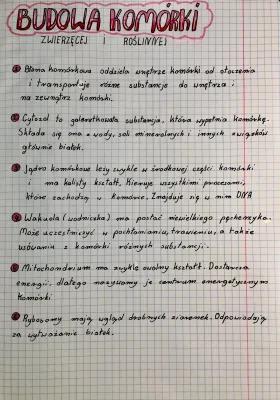 BUDOWA KOMÓRKI
ZWIERZĘCEJ I ROŚLINNEJ
1 Błona komórkowa oddziela wnętrze komórki od otoczenia
i transportuje różne substancje do wnętrza i
na zewnątrz komórki.
2 Cytozol to galaretkowata substancja, która wypełnia komórkę.
Składa się ona z wody, soli mineralnych i innych związków
głównie białek.
3 Jądro komórkowe leży zwykle w środkowej części komórki
i ma kolisty kształt. Kieruje wszystkimi procesami,
które zachodzą w komórce. Znajduje się w nim DNA
4 Wakuola (wodniczka) ma postać niewielkiego pęcherzyka.
Może uczestniczyć w pochłanianiu, trawieniu, a także
usuwaniu z komórki różnych substancji.
5 Mitochondrium ma zwykle owalny kształt. Dostarcza
energii, dlatego nazywamy je centrum energetycznym
komórki.
6 Rybosomy mają wygląd drobnych ziarenek. Odpowiadają
za wytwarzanie białek.